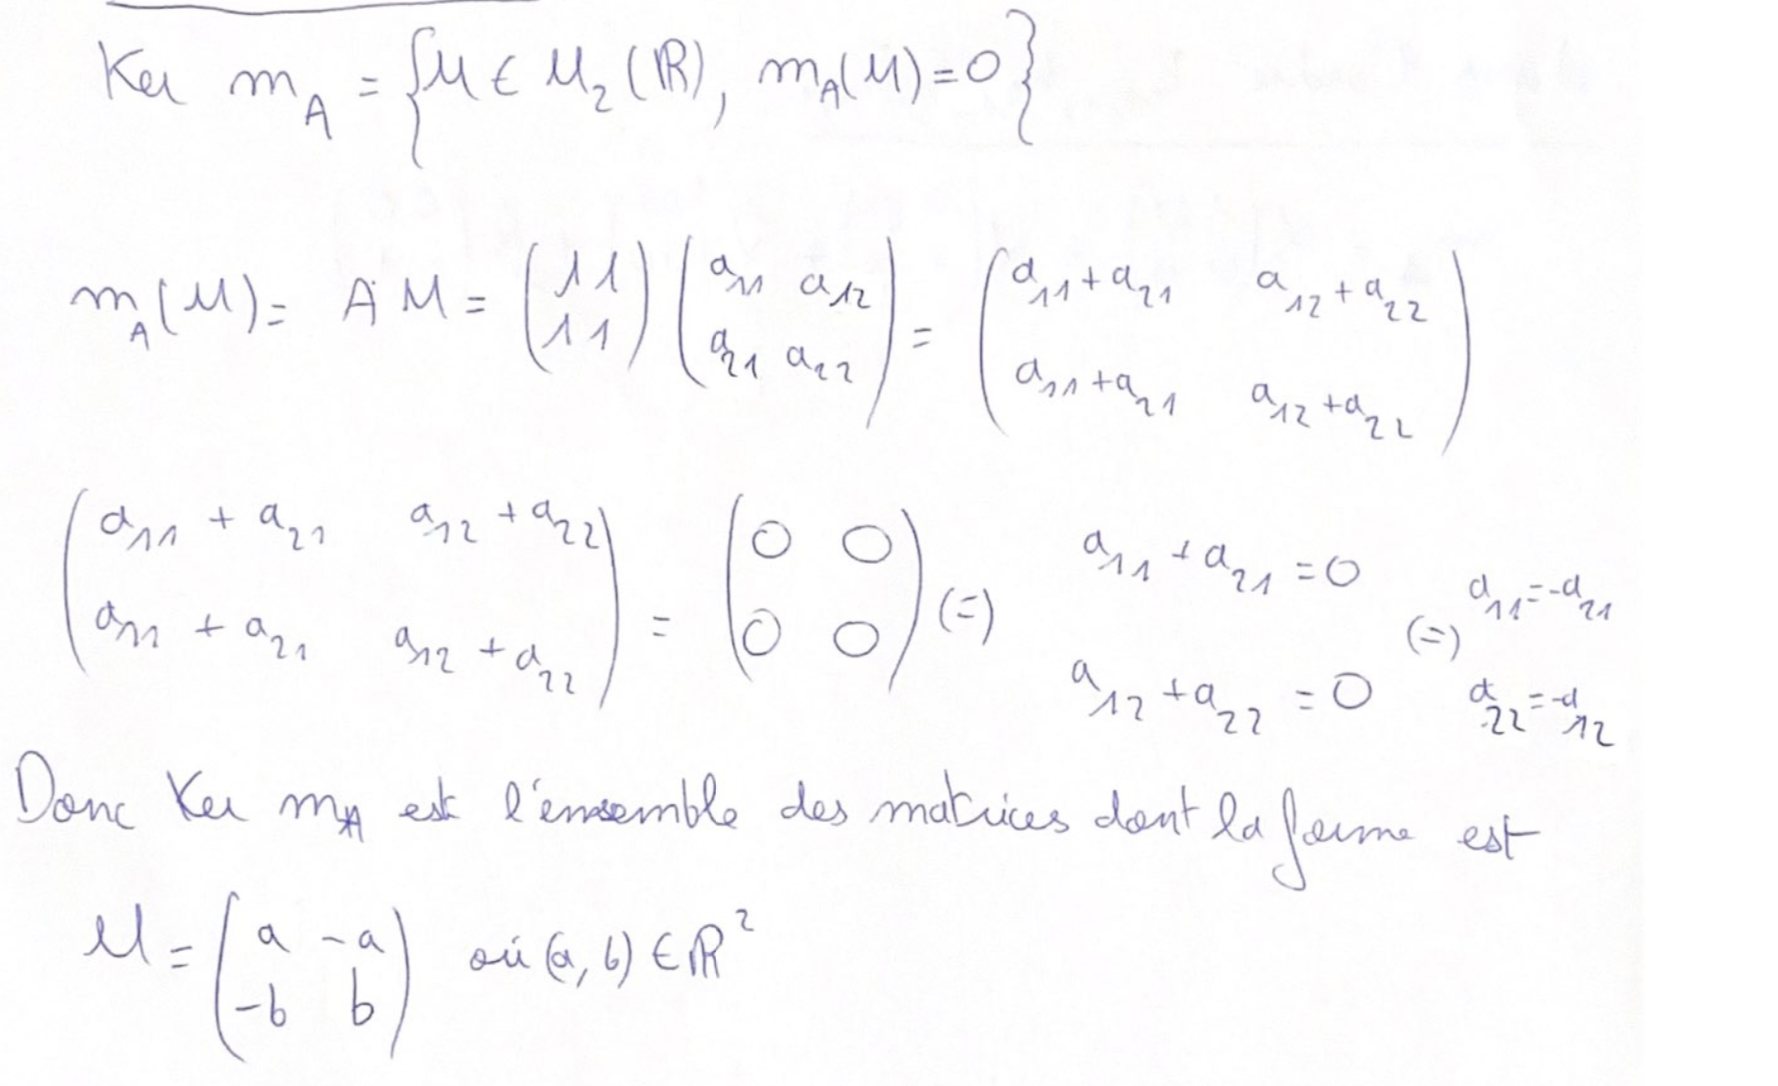 Ker m_A = {M ∈ M_2(ℝ), m_A(M)=0}
m_A(M)= AM = (1 1 ; 1 1) (a_11 a_12 ; a_21 a_22) = (a_11+a_21 a_12+a_22 ; a_11+a_21 a_12+a_22)
(a_11 + a_21 a_12 + a_22 ; a_11 + a_21 a_12 + a_22) = (0 0 ; 0 0) (=) a_11 + a_21 = 0 ; a_12 + a_22 = 0 (=) a_11=-a_21 ; a_22=-a_12
Donc Ker m_A est l'ensemble des matrices dont la forme est
M = (a -a ; -b b) où (a, b) ∈ ℝ^2